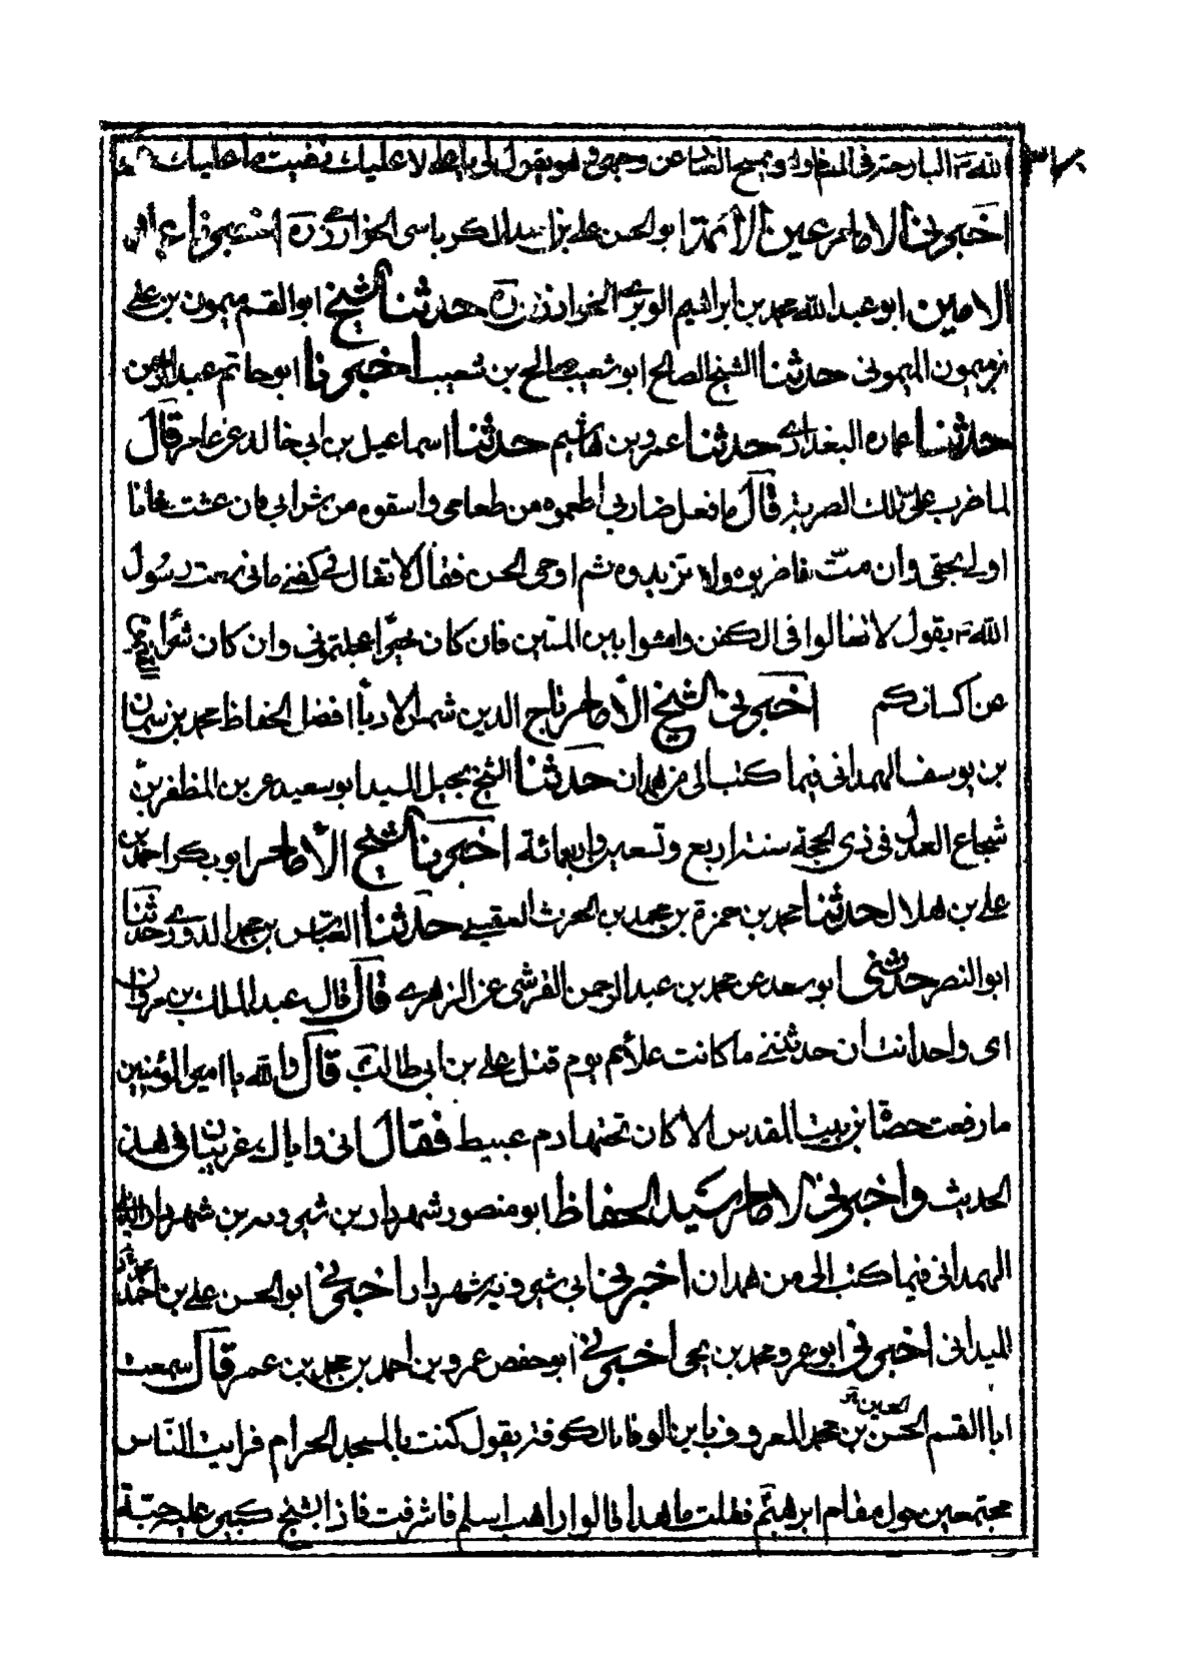 الله البارحة في المنام وهو يمسح الغبار عن وجهي وهو يقول لي يا علي لا عليك قضيت ما عليك
اخبرني الامام عين الأئمة ابو الحسن علي بن احمد الكرباسي الخوارزمي اخبرنا
الامين ابو عبد الله محمد بن ابراهيم الوبري الخوارزمي حدثنا الشيخ ابو القسم ميمون بن علي
بن ميمون الميموني حدثنا الشيخ الصالح ابو شعيب صالح بن شعيب اخبرنا ابو حاتم عبد الرحمن
حدثنا عماره البغدادي حدثنا عمرو بن هاشم حدثنا اسماعيل بن ابي خالد عن عامر قال
لما ضرب علي تلك الضربة قال ما فعل ضاربي اطعموه من طعامي واسقوه من شرابي فان عشت فانا
اولى بحقي وان مت فاضربوه ولا تزيدوه ثم اوصى الحسن فقال لا تغال في كفني فاني سمعت رسول
الله يقول لا تغالوا في الكفن وامشوا بي بين المشيتين فان كان خيرا عجلتموني وان كان شرا
عن اكتافكم اخبرني الشيخ الأمام تاج الدين شمس الادباء افضل الحفاظ محمد بن سمان
بن يوسف الهمداني فيما كتب الي من همدان حدثنا الشيخ الجليل السيد ابو سعيد عمر بن المظفر بن
شجاع العدل في ذي الحجة سنة اربع وتسعين واربعمائة اخبرنا الشيخ الأمام ابو بكر احمد بن
علي بن هلال حدثنا محمد بن حمزة بن محمد بن الحرث العقيبي حدثنا العباس بن محمد الدوري حدثنا
ابو النصر حدثني ابو سعد عن محمد بن عبد الرحمن القرشي عن الزهري قال قال عبد الملك بن مروان
اي واحد انت ان حدثتني ما كانت علامة يوم قتل علي بن ابي طالب قال والله يا امير المؤمنين
ما رفعت حصاة من بيت المقدس الا كان تحتها دم عبيط فقال اني واياك غريبان في هذا
الحديث واخبرني الامام سيد الحفاظ ابو منصور شهردار بن شيرويه بن شهردار الديلمي
الهمداني فيما كتب الي من همدان اخبرني ابي شيرويه بن شهردار اخبرني ابو الحسن علي بن احمد
الميداني اخبرني ابو عمرو محمد بن يحيى اخبرني ابو حفص عمرو بن احمد بن محمد بن عمر قال سمعت
الحسين
ابا القسم الحسن بن محمد المعروف بابن الوفا بالكوفة يقول كنت بالمسجد الحرام فرايت النّاس
مجتمعين حول مقام ابرهيم فقلت ما هذا قالوا راهب اسلم فاشرفت فاذا بشيخ كبير عليه جبّة